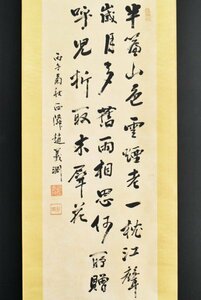 半簾山色雲煙老一枕江聲
歲月多舊雨相思何所贈
呼兒折取木犀花
丙午菊秋正
趙義淵